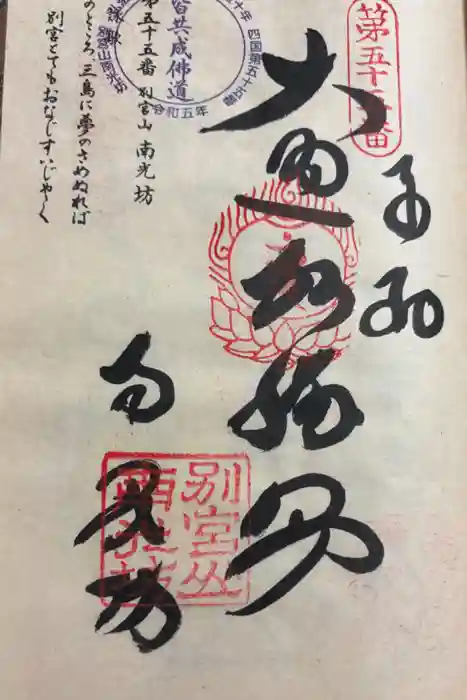 第五十五番
奉納
大通智勝佛
南光坊
別宮山
南光坊
四国第五十五番
令和五年
皆共成佛道
第五十五番 別宮山 南光坊
のところ三島に夢のさめぬれば
別宮とてもおなじすいじやく